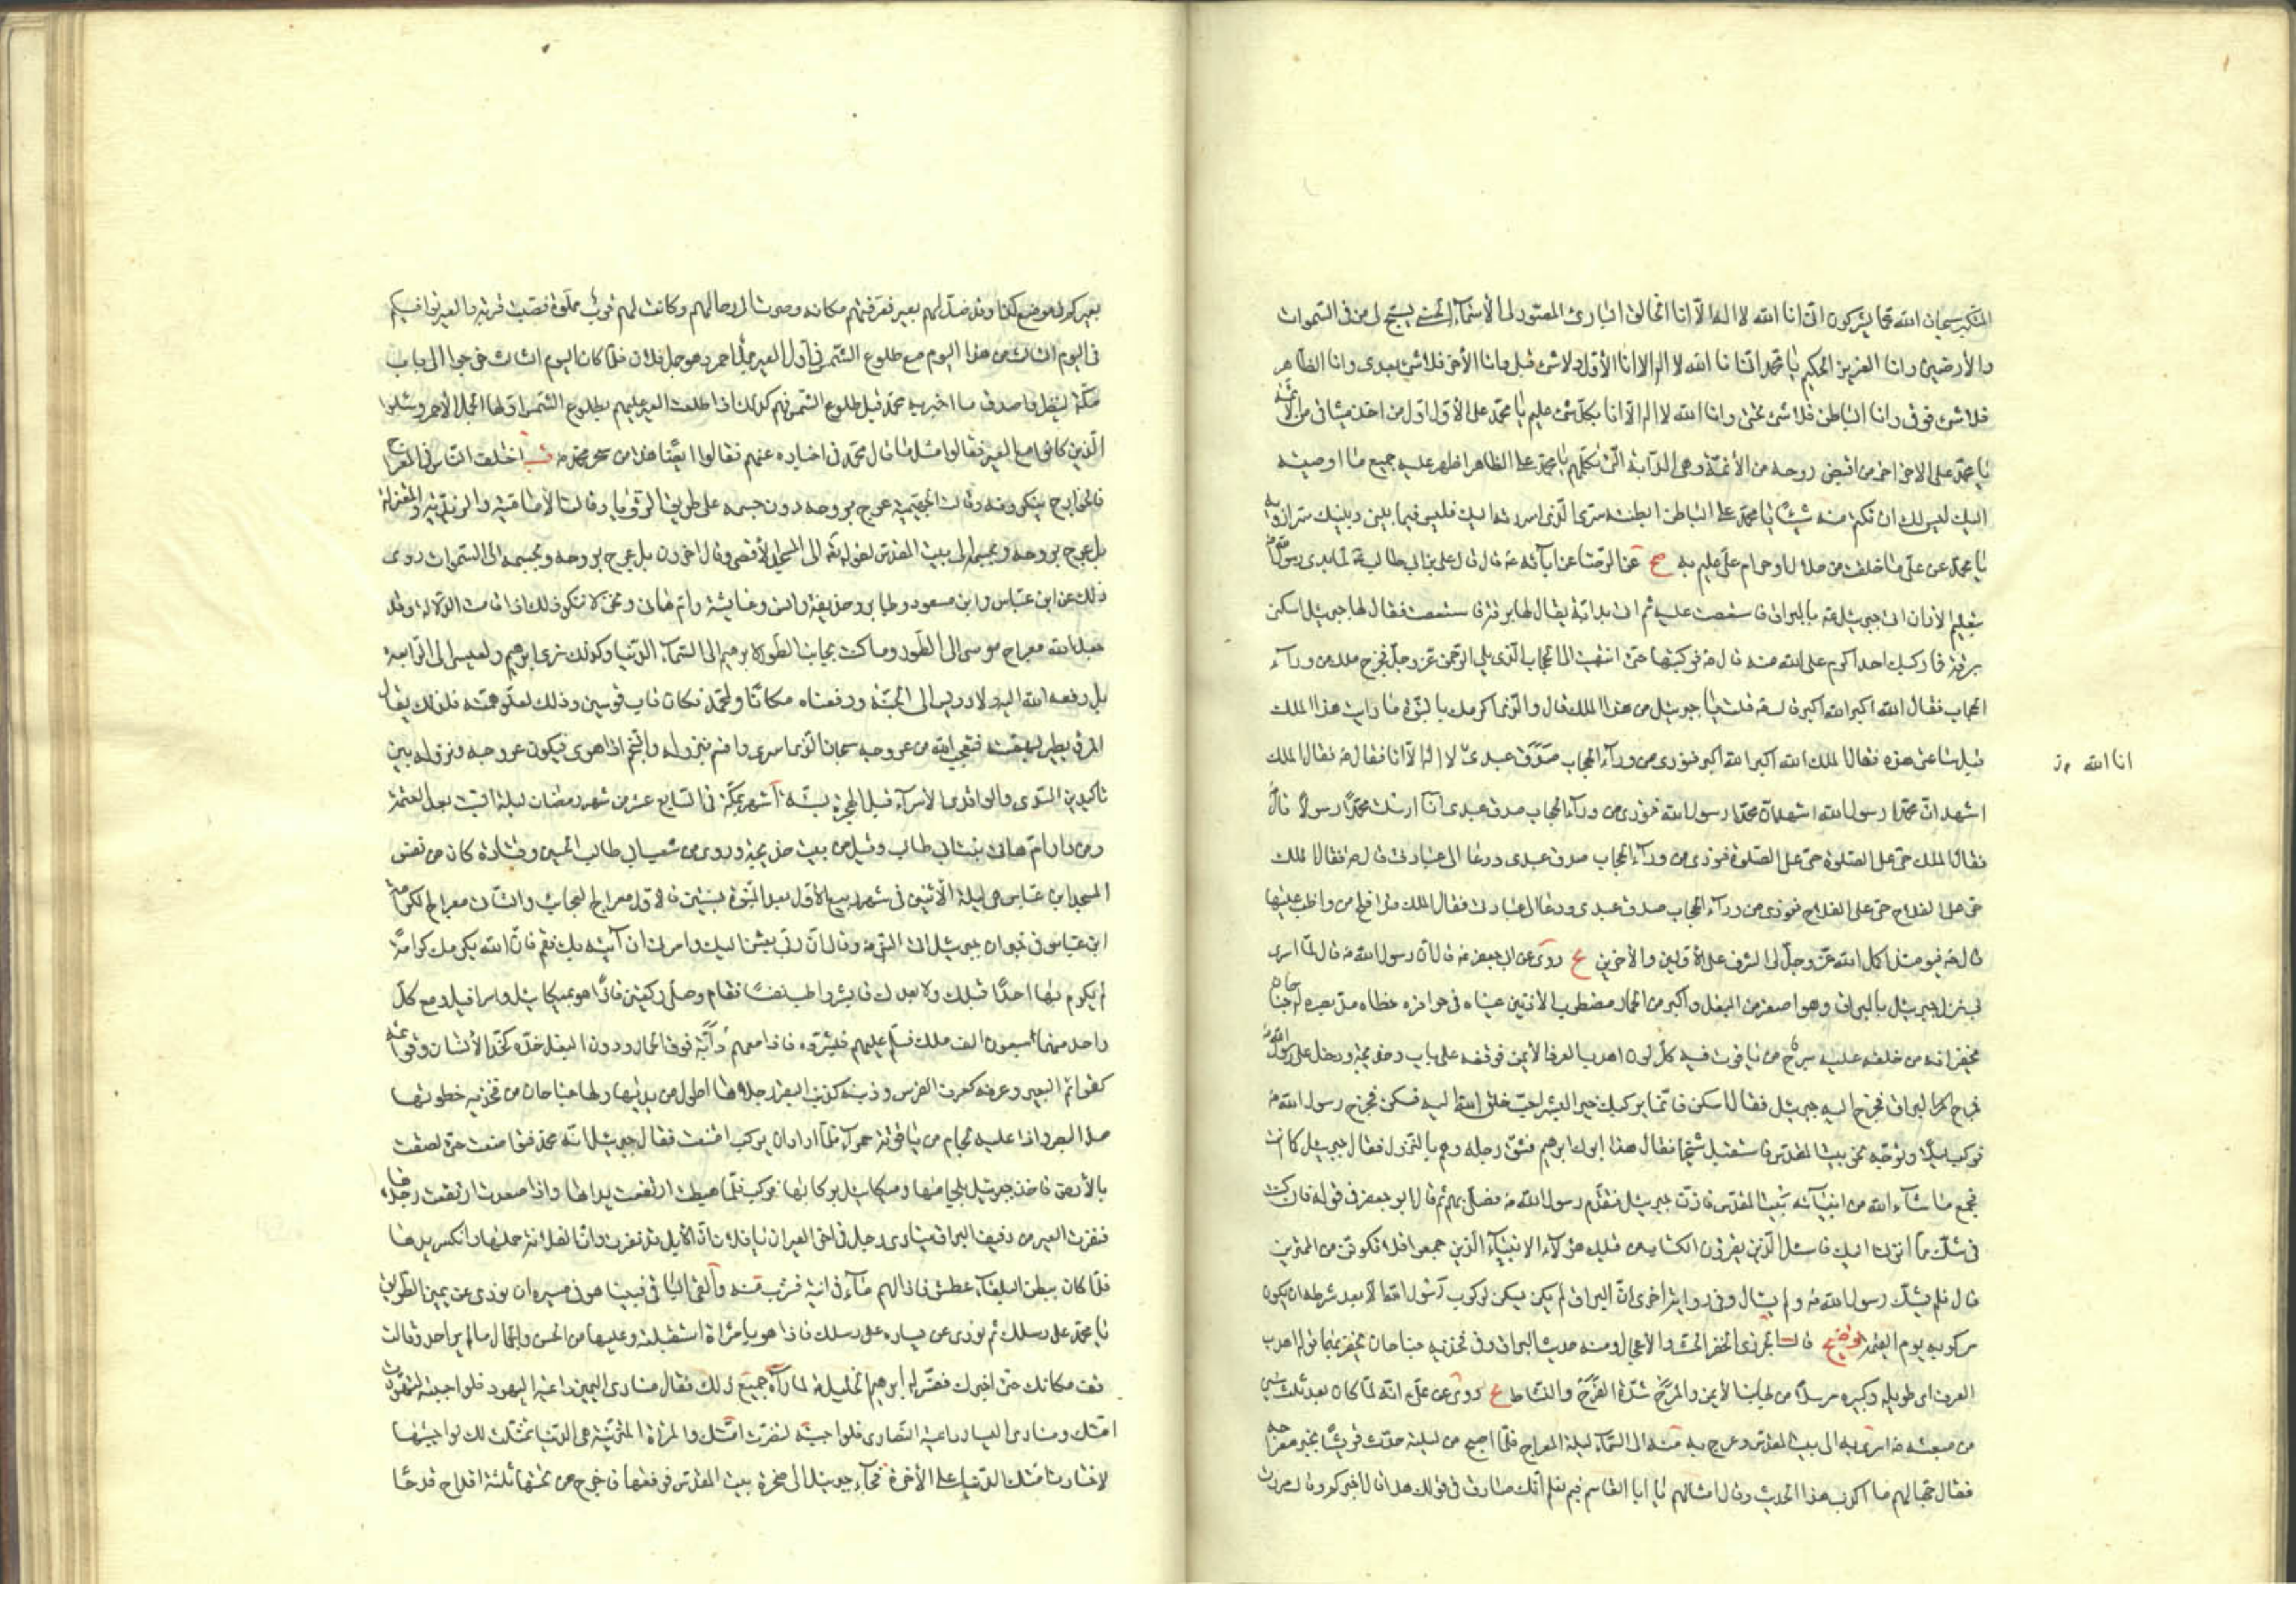 المتكبر سبحان الله عما يشركون انى انا الله لا اله الا انا الخالق البارئ المصور لى الأسماء الحسنى يسبح لى من فى السموات
والأرضين وانا العزيز الحكيم يا محمد انى انا الله لا اله الا انا الأول ولا شئ قبلى وانا الأخر فلا شئ بعدى وانا الظاهر
فلا شئ فوقى وانا الباطن فلا شئ تحتى وانا الله لا اله الا انا بكل شئ عليم يا محمد على الأول اول من اخذ ميثاقى من الأئمة
يا محمد على الاخر اخر من اقبض روحه من الأئمة وهى الدابة التى تكلمهم يا محمد على الظاهر اظهر عليه جميع ما اوصيته
اليك ليس لك ان تكتم منه شيئا يا محمد على الباطن ابطنته سرى الذى اسررته اليك فليس فيما بينى وبينك سر ازويه
يا محمد عن على ما خلقت من حلال او حرام على عليم به صح عن الرضا عن ابائه ع قال قال على بن ابى طالب ع لما بدى رسول الله ص
بتعليم الاذان اتى جبرئيل ع بالبراق فاستصعبت عليه ثم اتى بدابة يقال لها برقة فاستصعبت فقال لها جبرئيل اسكنى
برقة فما ركبك احد اكرم على الله منه قال ص فركبتها حتى انتهيت الى الحجاب الذى يلى الرحمن عز وجل فخرج ملك من وراء
الحجاب فقال الله اكبر الله اكبر قال ص قلت يا جبرئيل من هذا الملك قال والذى اكرمك بالنبوة ما رايت هذا الملك
قبل ساعتى هذه فقال الملك الله اكبر الله اكبر فنودى من وراء الحجاب صدق عبدى لا اله الا انا فقال ص فقال الملك
انا الله
اشهد ان محمدا رسول الله اشهد ان محمدا رسول الله فنودى من وراء الحجاب صدق عبدى انا ارسلت محمدا رسولا قال
فقال الملك حى على الصلوة حى على الصلوة فنودى من وراء الحجاب صدق عبدى ودعا الى عبادتى قال ص فقال الملك
حى على الفلاح حى على الفلاح فنودى من وراء الحجاب صدق عبدى ودعا الى عبادتى فقال الملك قد افلح من واظب عليها
قال ص فيومئذ اكمل الله عز وجل لى الشرف على الأولين والأخرين روى عن ابى جعفر ع قال ان رسول الله ص قال لما اسرى
بى نزل جبرئيل بالبراق وهو اصغر من البغل واكبر من الحمار مضطرب الاذنين عيناه فى حوافره خطاه مد بصره له جناحان
يحفزانه من خلفه عليه سرج من ياقوت فيه كل لون اهدب العرف الأيمن فوقفه على باب خديجة ودخل على رسول الله ص
فمرح البراق فخرج اليه جبرئيل فقال اسكن فانما يركبك خير البشر احب خلق الله اليه فسكن فخرج رسول الله ص
فركب ليلا وتوجه نحو بيت المقدس فاستقبل شيخا فقال هذا ابوك ابرهيم فثنى رجله وهم بالنزول فقال جبرئيل كما انت
فجمع ما شاء الله من انبيائه ببيت المقدس فاذن جبرئيل فتقدم رسول الله ص فصلى بهم ثم قال ابو جعفر فى قوله فان كنت
فى شك مما انزلنا اليك فاسئل الذين يقرؤن الكتاب من قبلك هؤلاء الانبياء الذين جمعوا فلا تكونن من الممترين
قال فلم يشك رسول الله ص ولم يسال وفى رواية اخرى ان البراق لم يكن يسكن لركوب رسول الله الا بعد شرطه ان يكون
مركوبه يوم القيمة توضيح قال الجزرى الحفز الحث والأعجال ومنه حديث البراق وفى فخذيه جناحان يحفز بهما قوله اهدب
العرف اى طويله وكثيره مرسلا من الجانب الأيمن والمرح شدة الفرح والنشاط روى عن على انه لما كان بعد ثلث سنين
من مبعثه ص اسرى به الى بيت المقدس وعرج به منه الى السماء ليلة المعراج فلما اصبح من ليلته حدث قريشا بخبر معراجه
فقال جهالهم ما اكذب هذا الحديث وقال امثالهم يا ابا القاسم فبم نعلم انك صادق فى قولك هذا قال اخبركم وقال مررت
بعيركم فى موضع كذا وقد ضل لهم بعير فعرفتهم مكانه وصرت الى رحالهم وكانت لهم قرب مملوة فصببت قربة والعير توافيكم
فى اليوم الثالث من هذا اليوم مع طلوع الشمس فى اول العير جمل احمر وهو جمل فلان فلما كان اليوم الثالث خرجوا الى باب
مكة لينظروا صدق ما اخبر به محمد قبل طلوع الشمس فهم كذلك اذا طلعت العير عليهم بطلوع الشمس فى اولها الجمل الأحمر وسئلوا
الذين كانوا مع العير فقالوا مثل ما قال محمد فى اخباره عنهم فقالوا ايضا هذا من سحر محمد قب اختلف الناس فى المعراج
فالخوارج ينكرونه وقالت الجهمية عرج بروحه دون جسمه على طريق الرؤيا وقالت الأمامية والزيدية والمعتزلة
بل عرج بروحه وبجسمه الى بيت المقدس لقوله تعالى الى المسجد الأقصى وقال اخرون بل عرج بروحه وبجسمه الى السموات روى
ذلك عن ابن عباس وابن مسعود وجابر وحذيفة وانس وعايشة وام هانى ونحن لا ننكر ذلك اذا قامت الدلالة وقد
جعل الله معراج موسى الى الطور وما كنت بجانب الطور ولابرهيم الى السماء الدنيا وكذلك نرى ابرهيم ولعيسى الى الرابعة
بل رفعه الله اليه ولادريس الى الجنة ورفعناه مكانا ولمحمد فكان قاب قوسين وذلك لعلو همته فلذلك يقال
المرء يطير بهمته فتعجب الله من عروجه سبحان الذى اسرى واقسم بنزوله والنجم اذا هوى فيكون عروجه ونزوله بين
تاكيدين السدى والواقدى الاسراء قبل الهجرة بستة اشهر بمكة فى السابع عشر من شهر رمضان ليلة السبت بعد العتمة
من دار ام هانى بنت ابى طالب وقيل من بيت خديجة وروى من شعب ابى طالب الحسن وقتادة كان من نفس
المسجد ابن عباس هى ليلة الاثنين فى شهر ربيع الأول بعد النبوة بسنتين فالاول معراج العجايب والثانى معراج الكرامة
ابن عباس فى خبر ان جبرئيل اتى النبى ص وقال ان ربى بعثنى اليك وامرنى ان اتيه بك فقم فان الله يكرمك كرامة
لم يكرم بها احدا قبلك ولا بعدك فابشر وطب نفسا فقام وصلى ركعتين فاذا هو بميكائيل واسرافيل ومع كل
واحد منهما سبعون الف ملك فسلم عليهم فبشروه فاذا معهم دابة فوق الحمار ودون البغل خده كخد الأنسان وقوائمه
كقوائم البعير وعرفه كعرف الفرس وذنبه كذنب البقر رجلاها اطول من يديها ولها جناحان من فخذيه خطوتها
مد البصر واذا عليه لجام من ياقوتة حمراء فلما اراد ان يركب امتنعت فقال جبرئيل انه محمد فتواضعت حتى لصقت
بالأرض فاخذ جبرئيل بلجامها وميكائيل بركابها فركب فلما هبطت ارتفعت يداها واذا صعدت ارتفعت رجلاها
فنفرت العير من دفيف البراق ينادى رجل فى اخر العير ان يا فلان ان الأبل قد نفرت وان فلانة حملها وانكسر يدها
فلما كان ببطن البلقاء عطش فاذا لهم ماء فى انية فشرب منه والقى الباقى فبينا هو فى مسيره ان نودى عن يمين الطريق
يا محمد على رسلك ثم نودى عن يساره على رسلك فاذا هو بامراة استقبلته وعليها من الحسن والجمال ما لم ير احد وقالت
قف مكانك حتى اخبرك ففسر له ابرهيم الخليل لما راه جميع ذلك فقال منادى اليمين داعية اليهود فلو اجبته لتهودت
امتك ومنادى اليسار داعية النصارى فلو اجبته لتنصرت امتك والمراة المتزينة هى الدنيا تمثلت لك لو اجبتها
لاختارت امتك الدنيا على الأخرة فجاء جبرئيل الى صخرة بيت المقدس فرفعها فاخرج من تحتها ثلثة اقداح قدحا